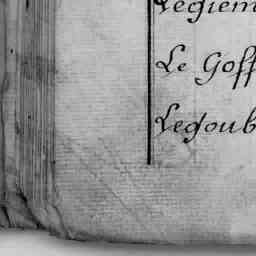 Legiem
Le Goff
Legoub